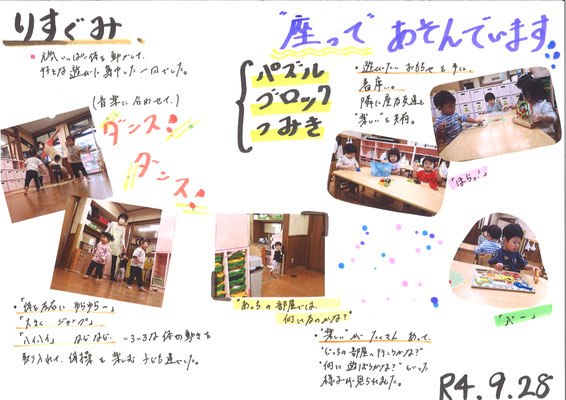 りすぐみ
・元気いっぱい体を動かして、
好きな遊びに集中した一日でした。
(音楽に合わせて)
ダンス!
ダンス!
・「体を左右に ゆらゆら〜」
「大きく ジャンプ」
「ハイハイ」 などなど いろいろな体の動きを
取り入れて、体操を楽しむ子ども達でした。
"座って"あそんでいます
パズル
ブロック
つみき
・遊びたいおもちゃを手に、
着席。
隣に座る友達と
"楽しい"を共有。
「ほらっ!」
「ぶー」
"あっちの部屋には、
何があるのかな?"
・"楽しい"がたくさんあって、
"どっちの部屋へ行こうかな?"
"何に遊ぼうかな?"といった
様子が見られました。
R4.9.28